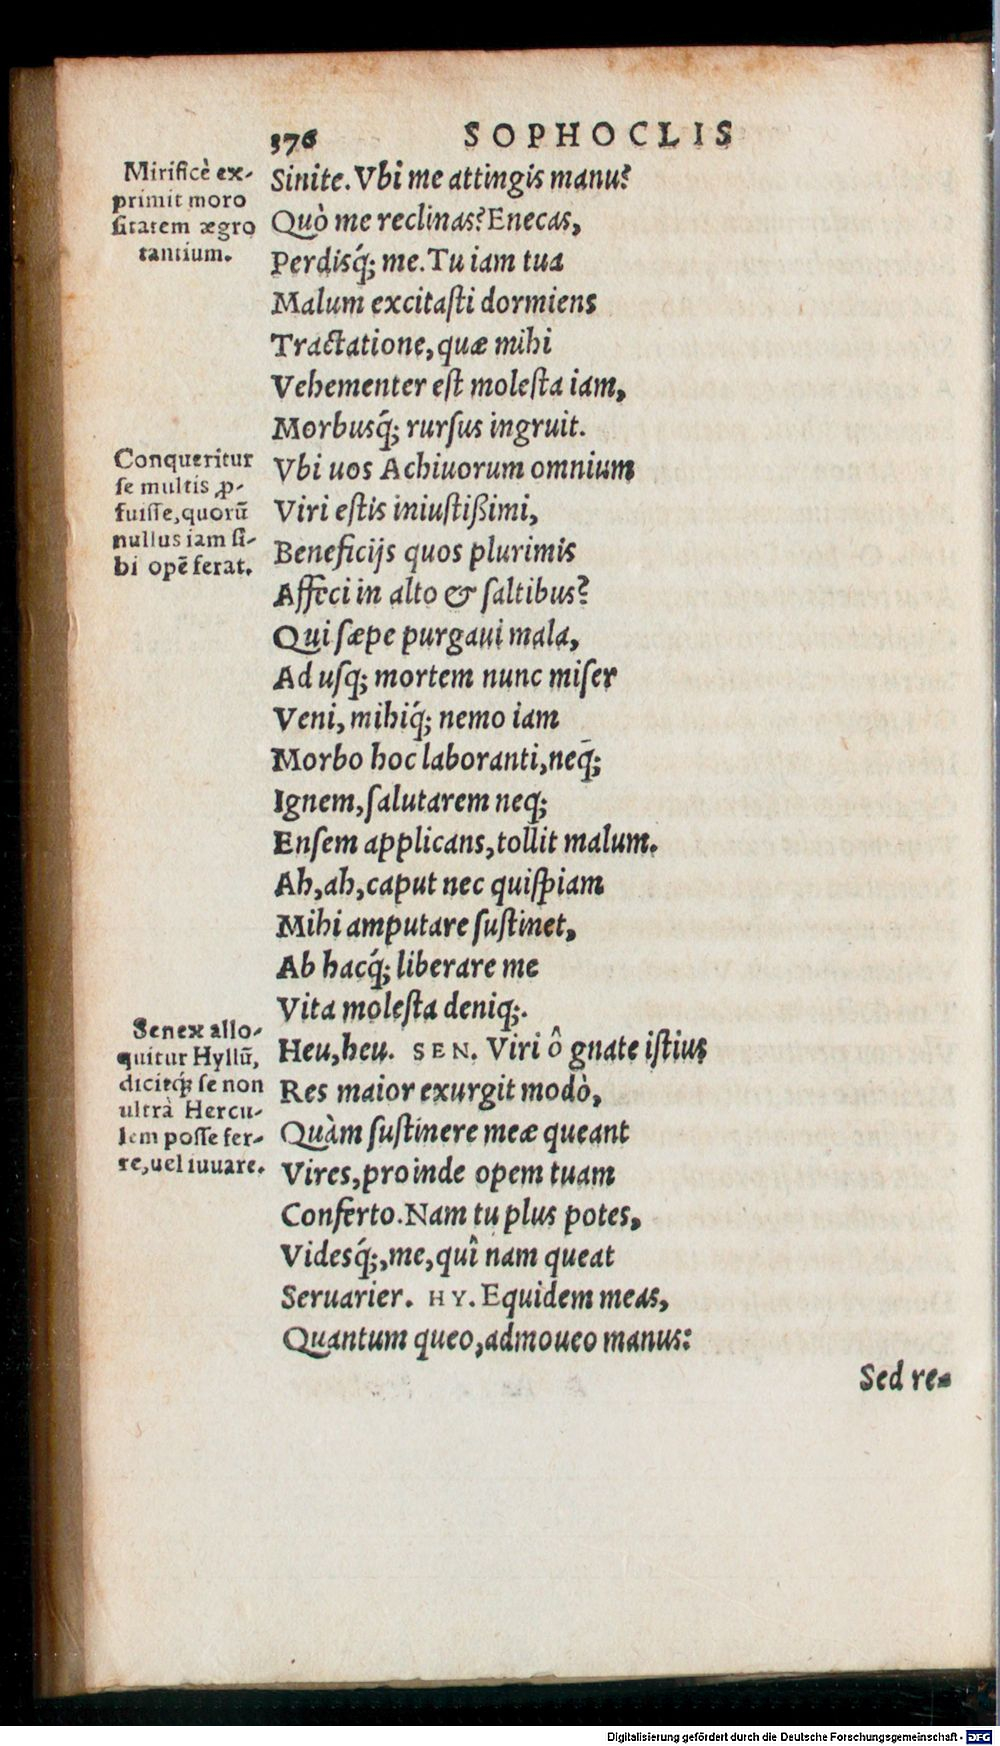 376 SOPHOCLIS
Mirificè ex-
primit moro
sitatem ægro
tantium.
Sinite. Vbi me attingis manu?
Quò me reclinas? Enecas,
Perdisq́; me. Tu iam tua
Malum excitaſti dormiens
Tractatione, quæ mihi
Vehementer eſt moleſta iam,
Morbusq́; rurſus ingruit.
Conqueritur
ſe multis ꝓ-
fuiſſe, quorũ
nullus iam ſi-
bi opẽ ferat.
Vbi uos Achiuorum omnium
Viri eſtis iniuſtißimi,
Beneficijs quos plurimis
Affeci in alto & ſaltibus?
Qui ſæpe purgaui mala,
Ad uſq; mortem nunc miſer
Veni, mihiq́; nemo iam
Morbo hoc laboranti, neq̃;
Ignem, ſalutarem neq;
Enſem applicans, tollit malum.
Ah, ah, caput nec quiſpiam
Mihi amputare ſuſtinet,
Ab hacq́; liberare me
Vita moleſta deniq;.
Senex allo-
quitur Hyllũ,
dicitq́; ſe non
ultrà Hercu-
lem poſſe fer-
re, uel iuuare.
Heu, heu. SEN. Viri ô gnate iſtius
Res maior exurgit modò,
Quàm ſuſtinere meæ queant
Vires, proinde opem tuam
Conferto. Nam tu plus potes,
Videsq́;, me, quî nam queat
Seruarier. HY. Equidem meas,
Quantum queo, admoueo manus:
Sed re-
Digitalisierung gefördert durch die Deutsche Forschungsgemeinschaft - DFG